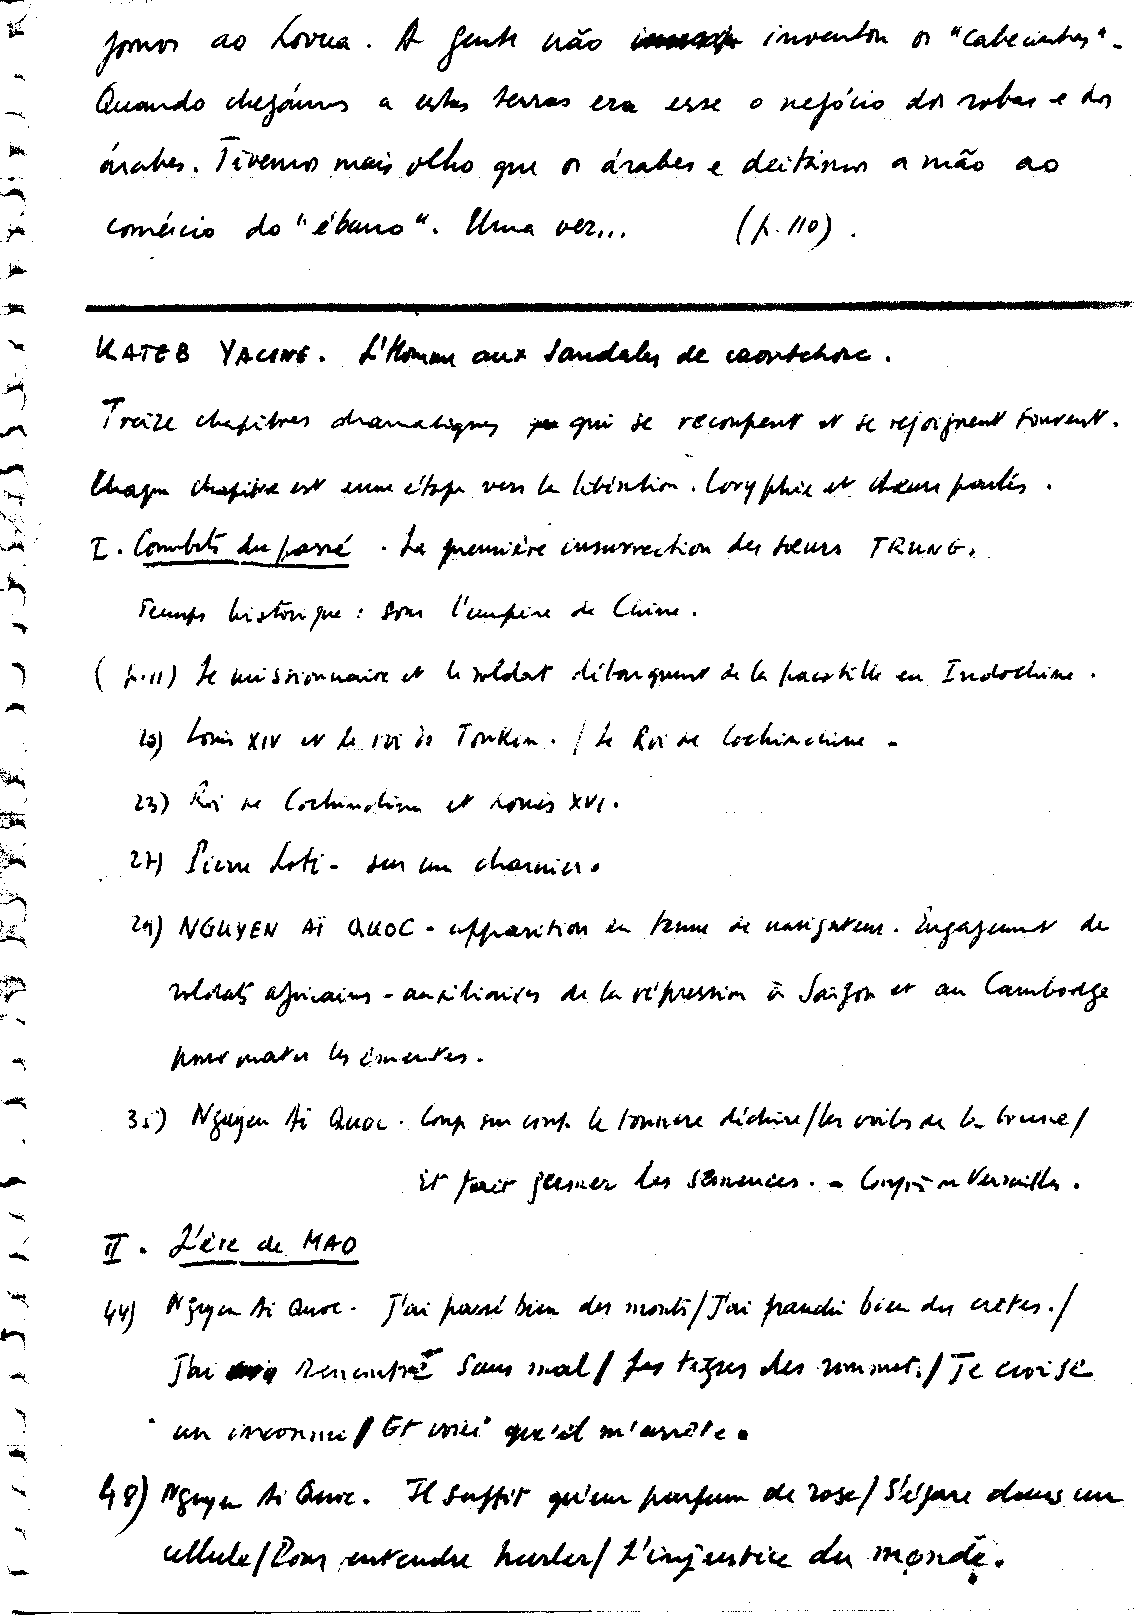 fomos ao Lovua. A gente não inventou os "cabecinhas".
Quando chegámos a estas terras era esse o negócio dos sobas e dos
árabes. Tivemos mais olho que os árabes e deitámos a mão ao
comércio do "ébano". Uma vez... (p. 110).
KATEB YACINE. L'Homme aux Sandales de caoutchouc.
Treize chapitres dramatiques qui se recoupent et se rejoignent souvent.
Chaque chapitre est une étape vers la libération. Coryphée et choeurs parlés.
I. Combats du passé. La première insurrection des soeurs TRUNG.
Temps historique : sous l'empire de Chine.
(p. 11) Le missionnaire et le soldat débarquent de la pacotille en Indochine.
20) Louis XIV et le roi de Tonkin. / Le Roi de Cochinchine -
23) Roi de Cochinchine et Louis XVI.
27) Pierre Loti - sur un charnier.
29) NGUYEN AÏ QUOC - apparition en tenue de navigateur. Engagement de
soldats africains - auxiliaires de la répression à Saïgon et au Cambodge
pour mater les émeutes.
35) Nguyen Aï Quoc. Coup sur coup le tonnerre déchire / les voiles de la brume /
Et fait germer les semences. - Congrès Versailles.
II. L'ère de MAO
44) Nguyen Aï Quoc. J'ai passé bien des monts / J'ai franchi bien des crêtes. /
J'ai rencontré sans mal / Les tigres des sommets. / Je croise
un inconnu / Et voici qu'il m'arrête.
48) Nguyen Aï Quoc. Il suffit qu'un parfum de rose / S'égare dans un
cellule / Pour entendre hurler / L'injustice du monde.